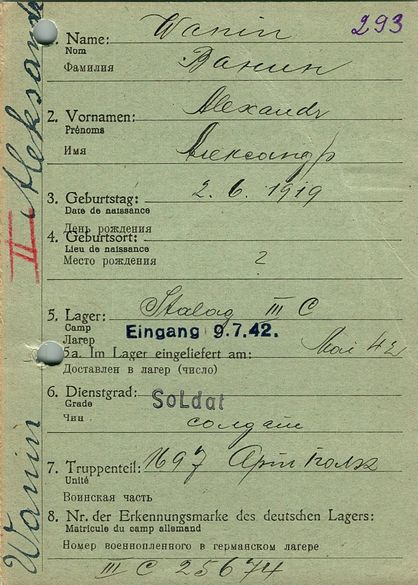 293
1. Name: Wanin
Nom
Фамилия Ванин
2. Vornamen: Alexandr
Prénoms
Имя Александр
3. Geburtstag: 2.6.1919
Date de naissance
День рождения
4. Geburtsort:
Lieu de naissance
Место рождения ?
5. Lager: Stalag III C
Camp
Лагер Eingang 9.7.42.
5a. Im Lager eingeliefert am: Mai 42
Доставлен в лагер (число)
6. Dienstgrad: Soldat
Grade
Чин солдат
7. Truppenteil: 1697 Арт полк
Unité
Воинская часть
8. Nr. der Erkennungsmarke des deutschen Lagers:
Matricule du camp allemand
Номер военнопленного в германском лагере
III C 25674
Wanin II Aleksand